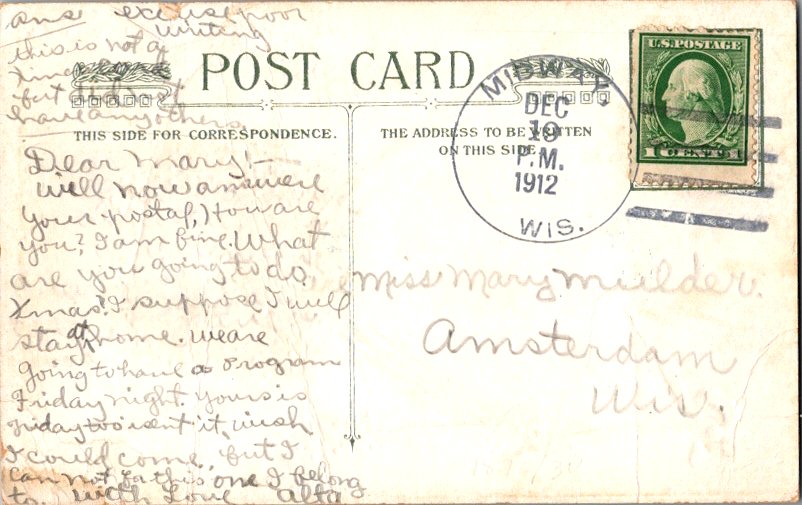 ans excuse poor
writing
this is not a
Xmas
but I do not
have any others.
POST CARD
THIS SIDE FOR CORRESPONDENCE.
THE ADDRESS TO BE WRITTEN
ON THIS SIDE.
MIDWAY,
DEC
19
P.M.
1912
WIS.
U.S. POSTAGE
1 CENT 1
Dear Mary!—
Will now answer
your postal, How are
you? I am fine. What
are you going to do
Xmas? I suppose I will
stay at home. We are
going to have a Program
Friday night yours is
Friday too isent it, wish
I could come, but I
can not for this one I belong
to. With Love Alta
Miss Mary Mulder.
Amsterdam
Wis.